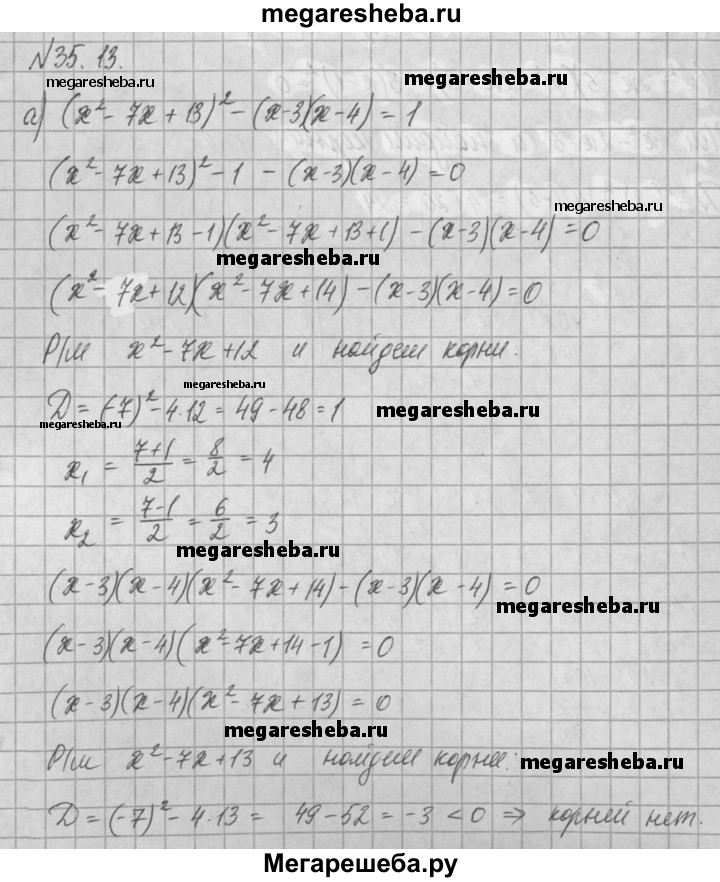 megaresheba.ru
N35.13.
megaresheba.ru
megaresheba.ru
а) (x² - 7x + 13)² - (x-3)(x-4) = 1
(x² - 7x + 13)² - 1 - (x-3)(x-4) = 0
megaresheba.ru
(x² - 7x + 13 - 1)(x² - 7x + 13 + 1) - (x-3)(x-4) = 0
megaresheba.ru
(x² - 7x + 12)(x² - 7x + 14) - (x-3)(x-4) = 0
Р/м x² - 7x + 12 и найдем корни.
megaresheba.ru
D = (-7)² - 4·12 = 49 - 48 = 1
megaresheba.ru
megaresheba.ru
x₁ = (7+1)/2 = 8/2 = 4
x₂ = (7-1)/2 = 6/2 = 3
megaresheba.ru
(x-3)(x-4)(x² - 7x + 14) - (x-3)(x-4) = 0
megaresheba.ru
(x-3)(x-4)(x² - 7x + 14 - 1) = 0
(x-3)(x-4)(x² - 7x + 13) = 0
megaresheba.ru
Р/м x² - 7x + 13 и найдем корни:
megaresheba.ru
D = (-7)² - 4·13 = 49 - 52 = -3 < 0 ⇒ корней нет.
Мегарешеба.ру